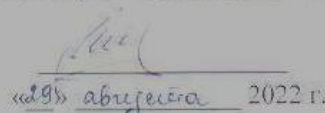 «29» августа 2022 г.